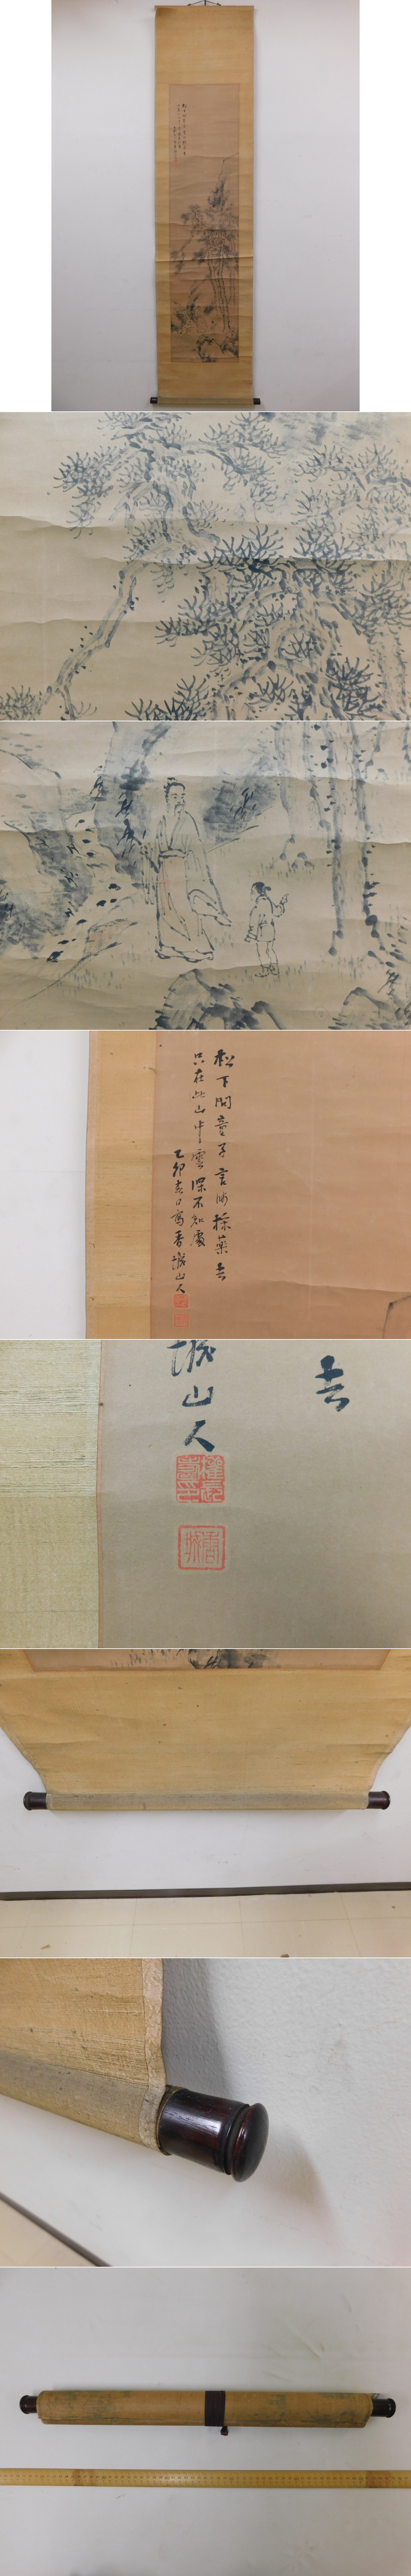 松下問童子言師採藥去
只在此山中雲深不知處
乙卯春日寫
山人